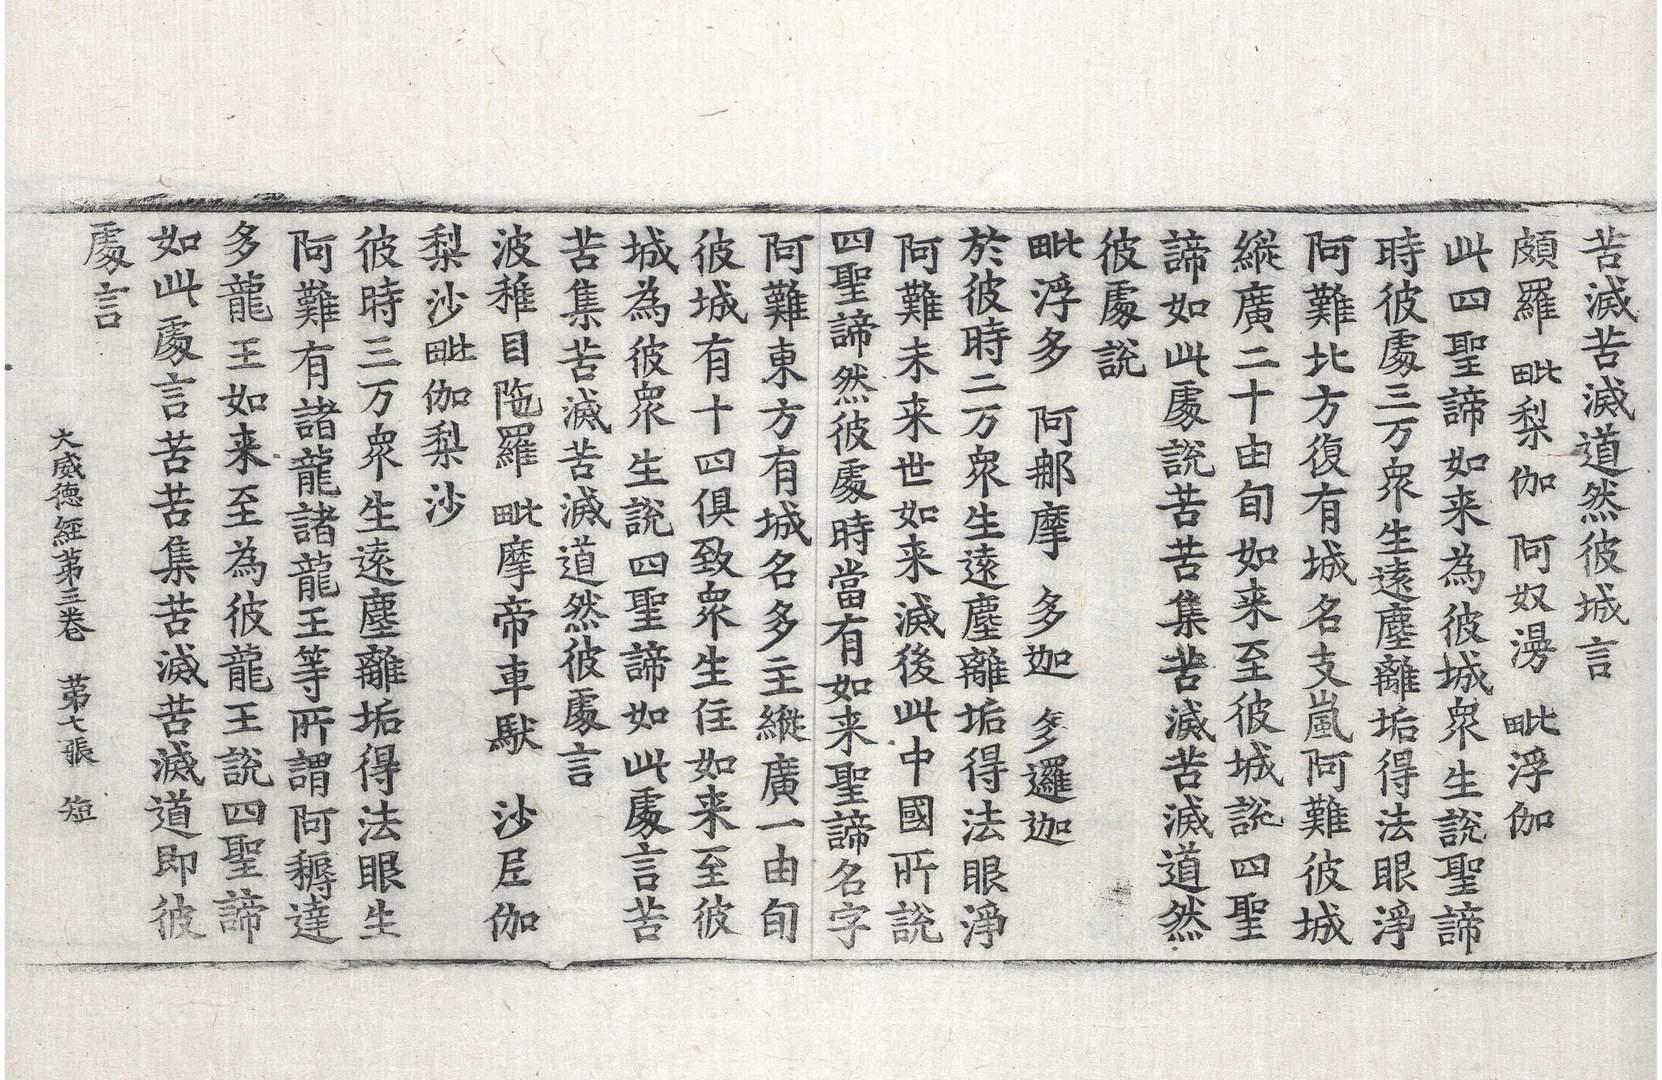 苦滅苦滅道然彼城言
頗羅　毗梨伽　阿奴漫　毗浮伽
此四聖諦如来為彼城衆生說聖諦
時彼處三万衆生遠塵離垢得法眼淨
阿難北方復有城名支嵐阿難彼城
縱廣二十由旬如来至彼城說四聖
諦如此處說苦苦集苦滅苦滅道然
彼處說
毗浮多　阿那摩　多迦　多邏迦
於彼時二万衆生遠塵離垢得法眼淨
阿難未来世如来滅後此中國所說
四聖諦然彼處時當有如来聖諦名字
阿難東方有城名多主縱廣一由旬
彼城有十四俱致衆生住如来至彼
城為彼衆生說四聖諦如此處言苦
苦集苦滅苦滅道然彼處言
波稚目陁羅　毗摩帝車馱　沙𡰱伽
梨沙毗伽梨沙
彼時三万衆生遠塵離垢得法眼生
阿難有諸龍諸龍王等所謂阿耨達
多龍王如来至為彼龍王說四聖諦
如此處言苦苦集苦滅苦滅道即彼
處言
大威德經第三卷　第七張　短